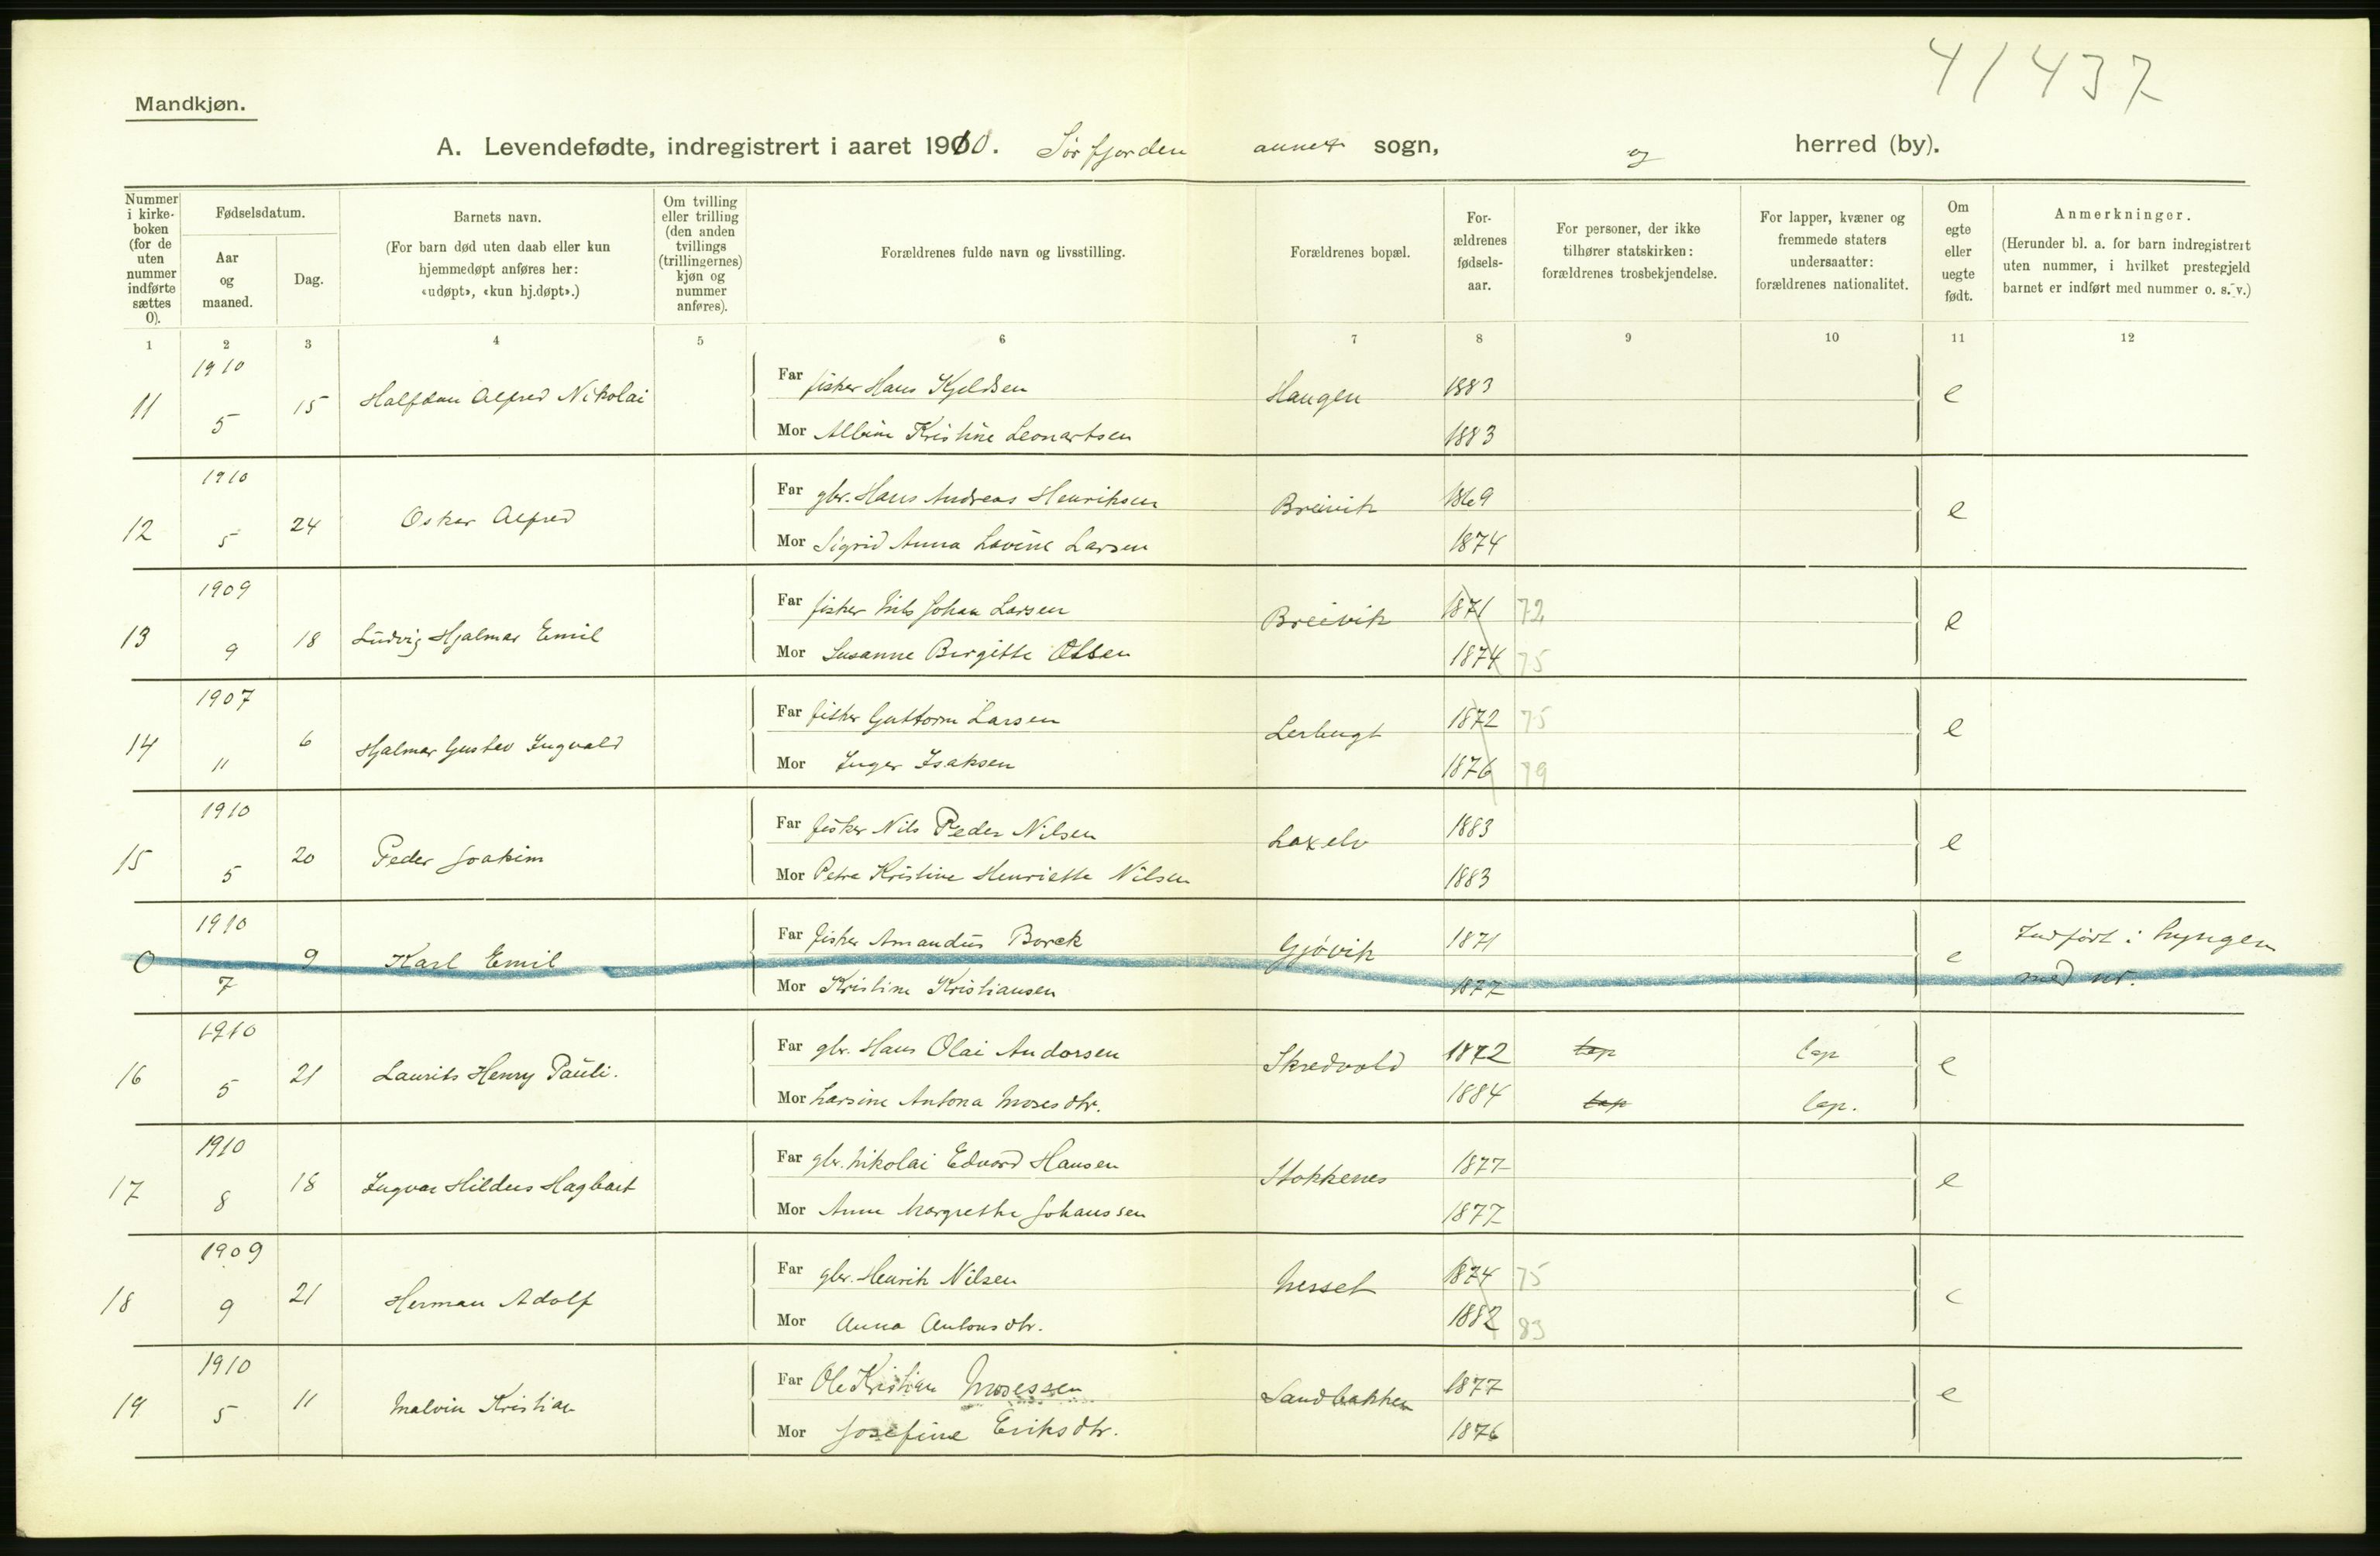 41437
Mandkjøn.
A. Levendefødte, indregistrert i aaret 1910. Sørfjorden annex sogn, og herred (by).
Nummer i kirke- boken (for de uten nummer indførte sættes 0).
Fødselsdatum.
Aar og maaned.
Dag.
Barnets navn.
(For barn død uten daab eller kun hjemmedøpt anføres her: «udøpt», «kun hj.døpt».)
Om tvilling eller trilling (den anden tvillings (trillingernes) kjøn og nummer anføres).
Forældrenes fulde navn og livsstilling.
Forældrenes bopæl.
For- ældrenes fødsels- aar.
For personer, der ikke tilhører statskirken: forældrenes trosbekjendelse.
For lapper, kvæner og fremmede staters undersaatter: forældrenes nationalitet.
Om egte eller uegte født.
Anmerkninger.
(Herunder bl. a. for barn indregistrert uten nummer, i hvilket prestegjeld barnet er indført med nummer o. s. v.)
1 2 3 4 5 6 7 8 9 10 11 12
1910
11 5 15 Halfdan Alfred Nikolai Far fisker Hans Kjeldsen Haugen 1883 e
Mor Albine Kristine Leonartsen 1883
1910
12 5 24 Oskar Alfred Far gbr. Hans Andreas Henriksen Breivik 1869 e
Mor Sigrid Anna Lovine Larsen 1874
1909
13 9 18 Ludvig Hjalmar Emil Far fisker Nils Johan Larsen Breivik 1871 72 e
Mor Susanne Birgitte Olsen 1874 75
1907
14 11 6 Hjalmar Gustav Ingvald Far fisker Guttorm Larsen Lerbugt 1872 75 e
Mor Inger Isaksen 1876 79
1910
15 5 20 Peder Joakim Far fisker Nils Peder Nilsen Laxelv 1883 e
Mor Petra Kristine Henriette Nilsen 1883
1910
0 7 9 Karl Emil Far fisker Amandus Borck Gjøvik 1871 e Indført i Lyngen
Mor Kristine Kristiansen 1877 med nr.
1910
16 5 21 Laurits Henry Pauli. Far gbr. Hans Olai Andorsen Skredvold 1872 lap lap e
Mor Larsine Antona Mosesdtr. 1884 lap lap.
1910
17 8 18 Ingvar Hilders Hagbart Far gbr. Nikolai Edvard Hansen Stokkenes 1877 e
Mor Anne Margrethe Johanssen 1877
1909
18 9 21 Herman Adolf Far gbr. Henrik Nilsen Nesset 1874 75 e
Mor Anna Antonsdtr. 1882 83
1910
19 5 11 Malvin Kristian Far Ole Kristian Mosessen Sandbakken 1877 e
Mor Josefine Eriksdtr. 1876